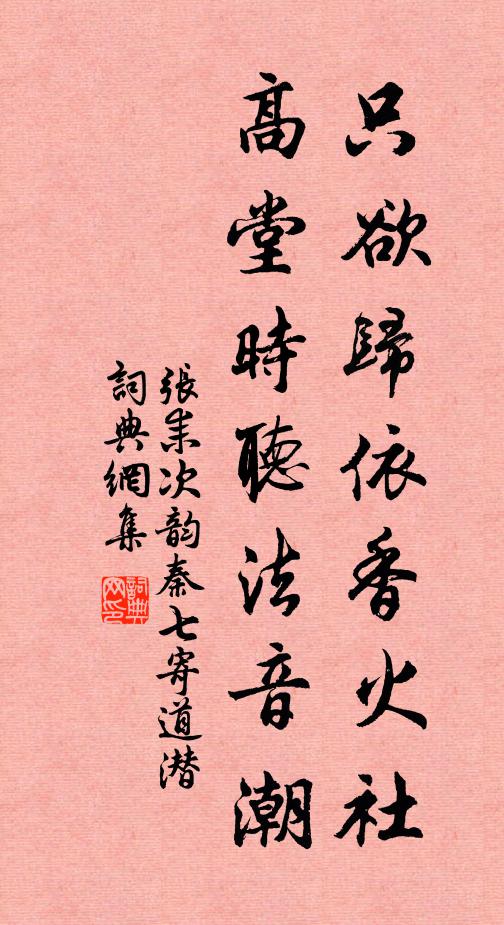 只欲歸依香火社
高堂時聽法音潮
張耒次韵秦七寄道潛
詞典網集
詞典
网印